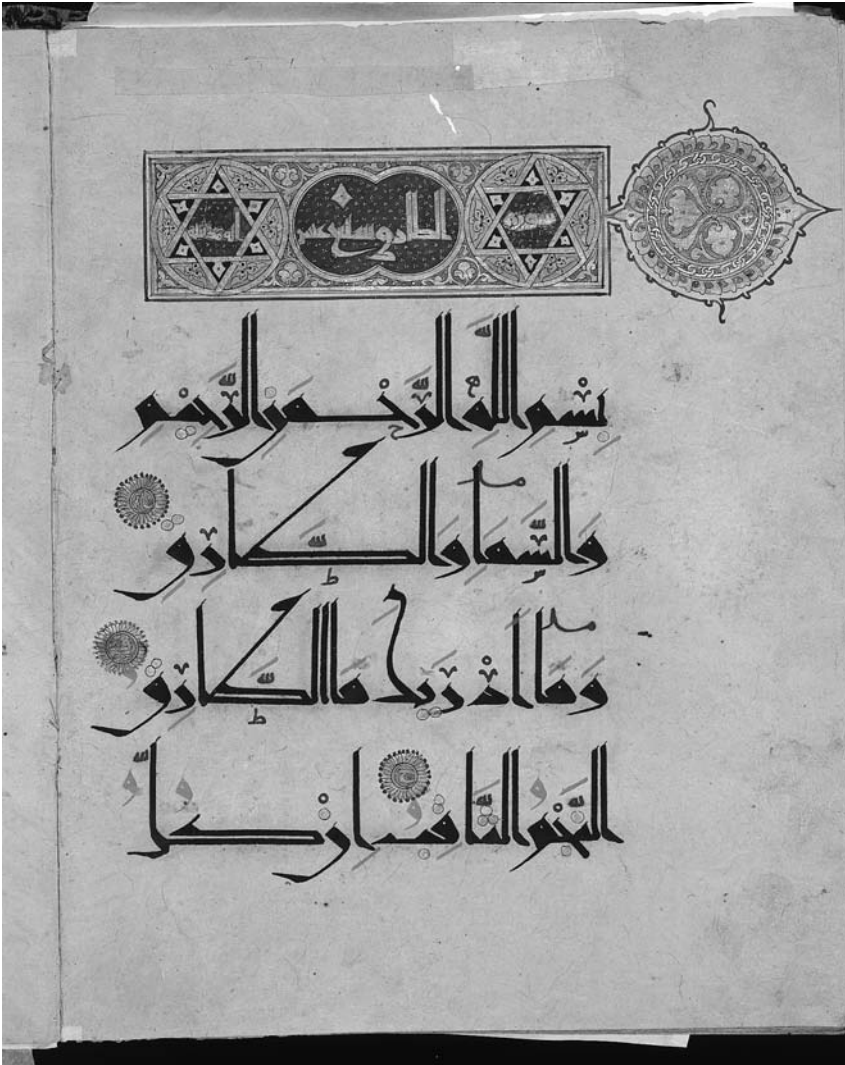 سورة
بسم الله الرحمن الرحيم
والسما والطارق
وما ادريك ما الطارق
النجم الثاقب ان كل